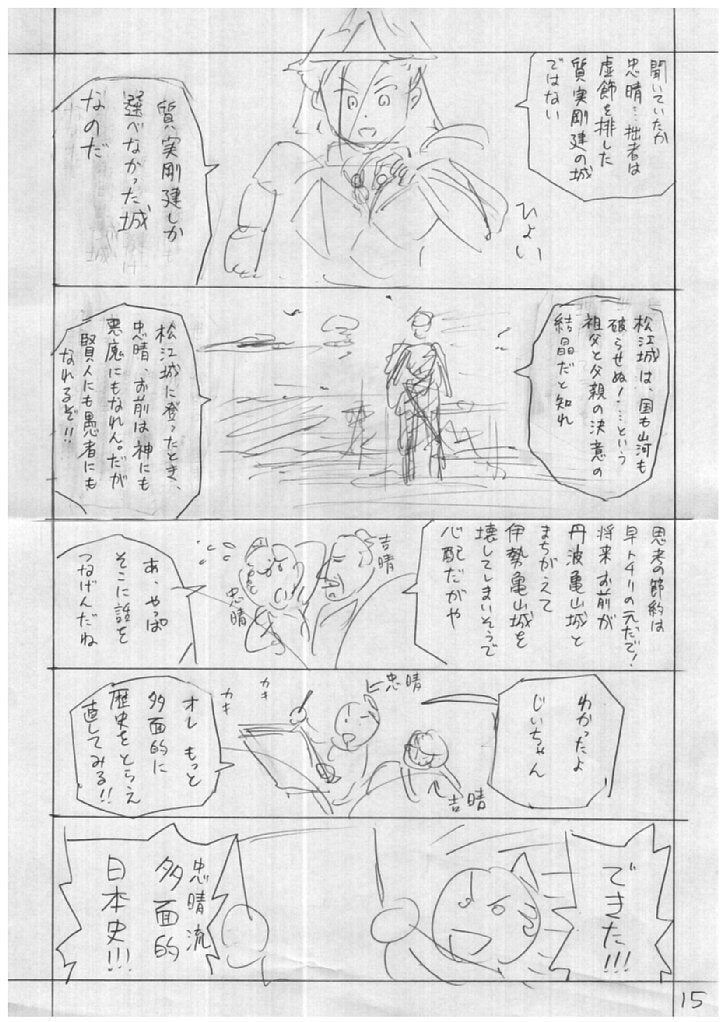 聞いていたか
忠晴…拙者は
虚飾を排した
質実剛建の城
ではない
ひょい
質実剛建しか
選べなかった城
なのだ
松江城は、国も山河も
破らせぬ!…という
祖父と父親の決意の
結晶だと知れ
松江城に登ったとき、
忠晴、お前は神にも
悪魔にもなれん。だが
賢人にも愚者にも
なれるぞ!!
思考の節約は
早トチリの元だで!
将来お前が
丹波亀山城と
まちがえて
伊勢亀山城を
壊してしまいそうで
心配だがや
吉晴
忠晴
あ、やっぱ
そこに話を
つなげんだね
わかったよ
じいちゃん
忠晴
吉晴
カキ
カキ
オレ もっと
多面的に
歴史をとらえ
直してみる!!
できた!!!
忠晴流
多面的
日本史!!!
15